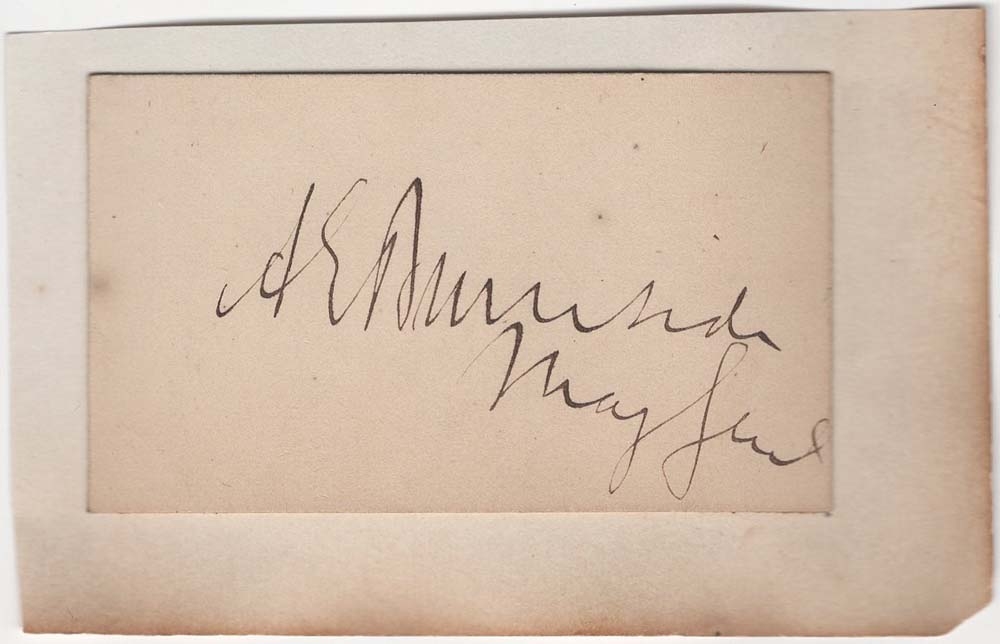 A E Burnside
Maj Genl